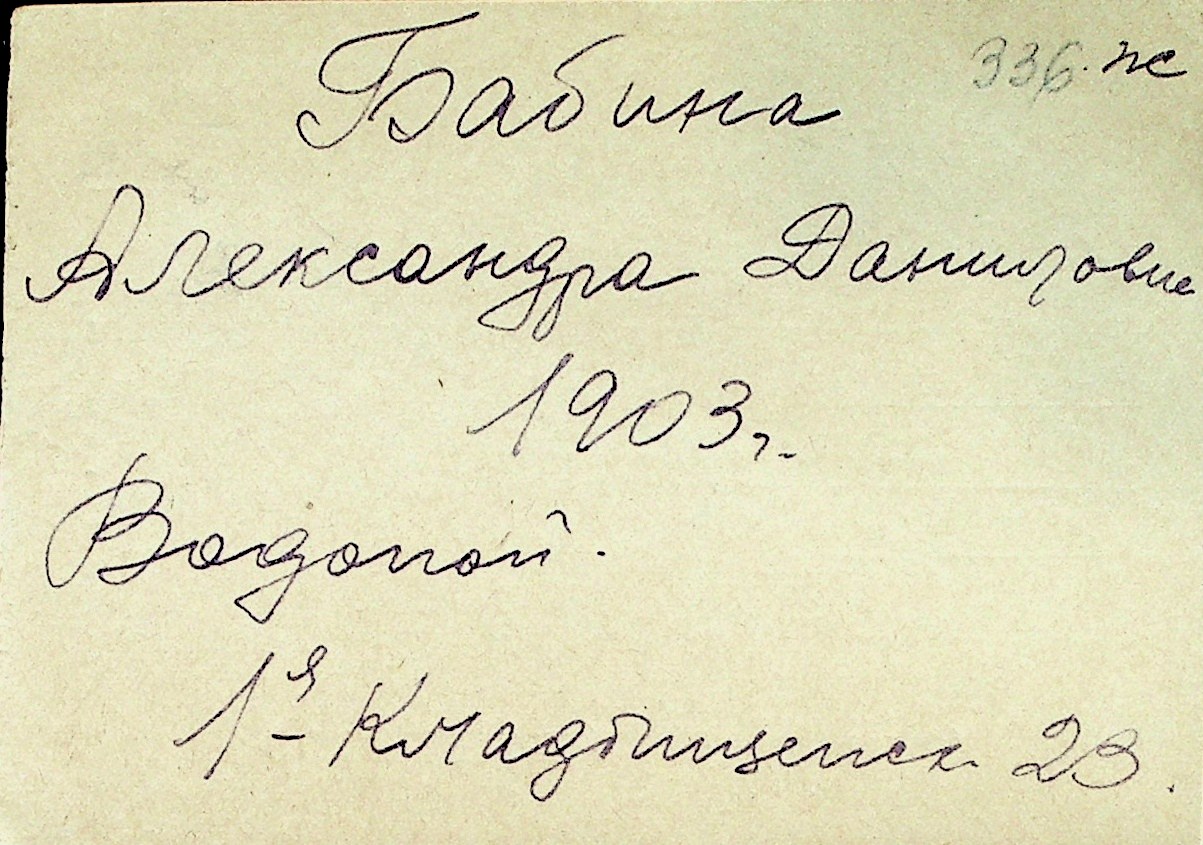 336. ж
Бабина
Александра Даниловна
1903 г.
Водопой.
1я Кладбищенск. 23.